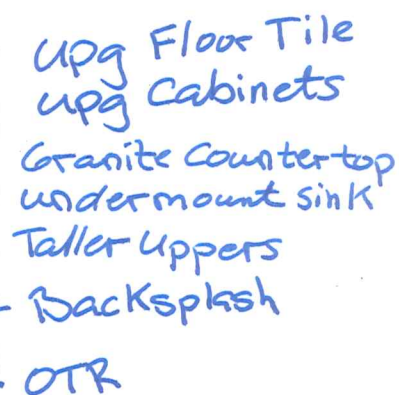 upg Floor Tile
upg Cabinets
Granite Countertop
undermount sink
Taller Uppers
- Backsplash
- OTR